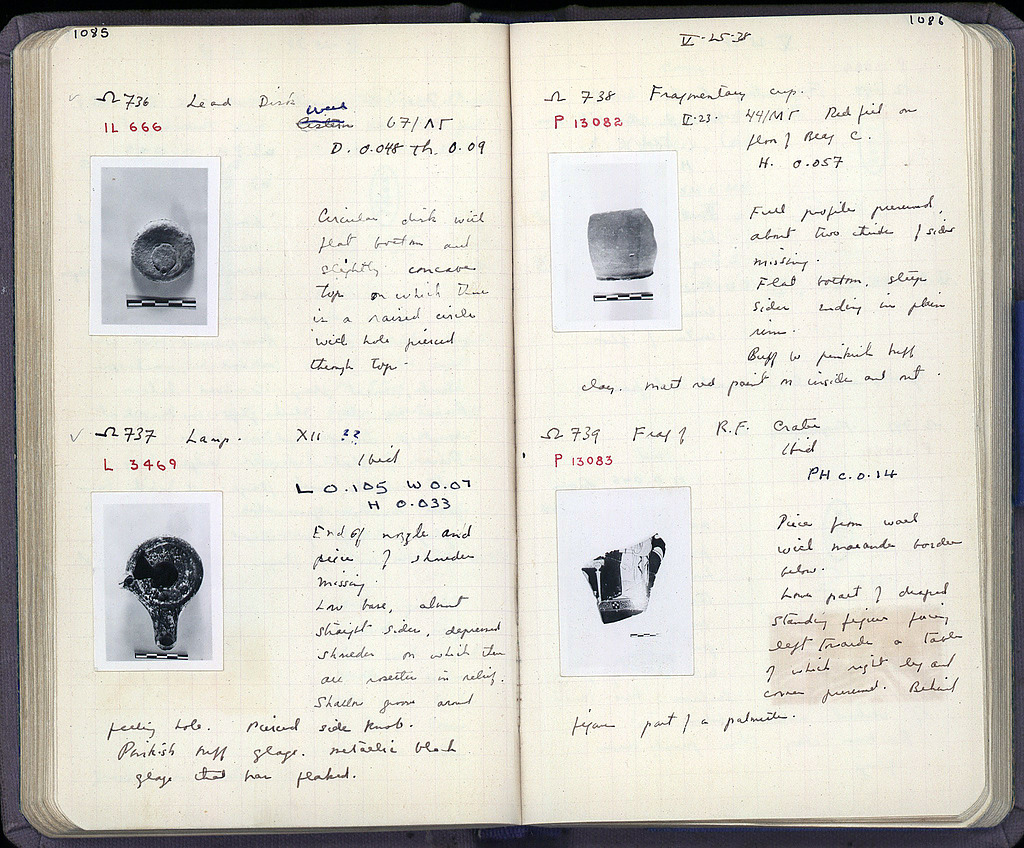 1085
Ω 736 Lead Disk
Well
Cistern 67/ΛΓ
IL 666
D. 0.048 Th. 0.09
Circular disk with
flat bottom and
slightly concave
top on which there
is a raised circle
with hole pierced
through top.
Ω 737 Lamp. XII ??
L 3469
Ibid
L 0.105 W 0.07
H 0.033
End of nozzle and
piece of shoulder
missing.
Low base, almost
straight sides, depressed
shoulder on which there
are rosettes in relief.
Shallow groove around
filling hole. Pierced side knob.
Pinkish buff glaze. metallic black
glaze that has flaked.
1086
V-25-38
Ω 738 Fragmentary cup.
P 13082
44/ΜΓ Red fill on
floor of Bldg C.
H. 0.057
Full profile preserved,
about two thirds of sides
missing.
Flat bottom, steep
sides ending in plain
rim.
Buff to pinkish buff
clay. Matt red paint on inside and out.
Ω 739 Frag of R.F. Crater
Ibid
P 13083
PH c. 0.14
Piece from wall
with maeander border
below.
Lower part of draped
standing figure facing
left towards a table
of which right leg and
corner preserved. Behind
figure part of a palmette.